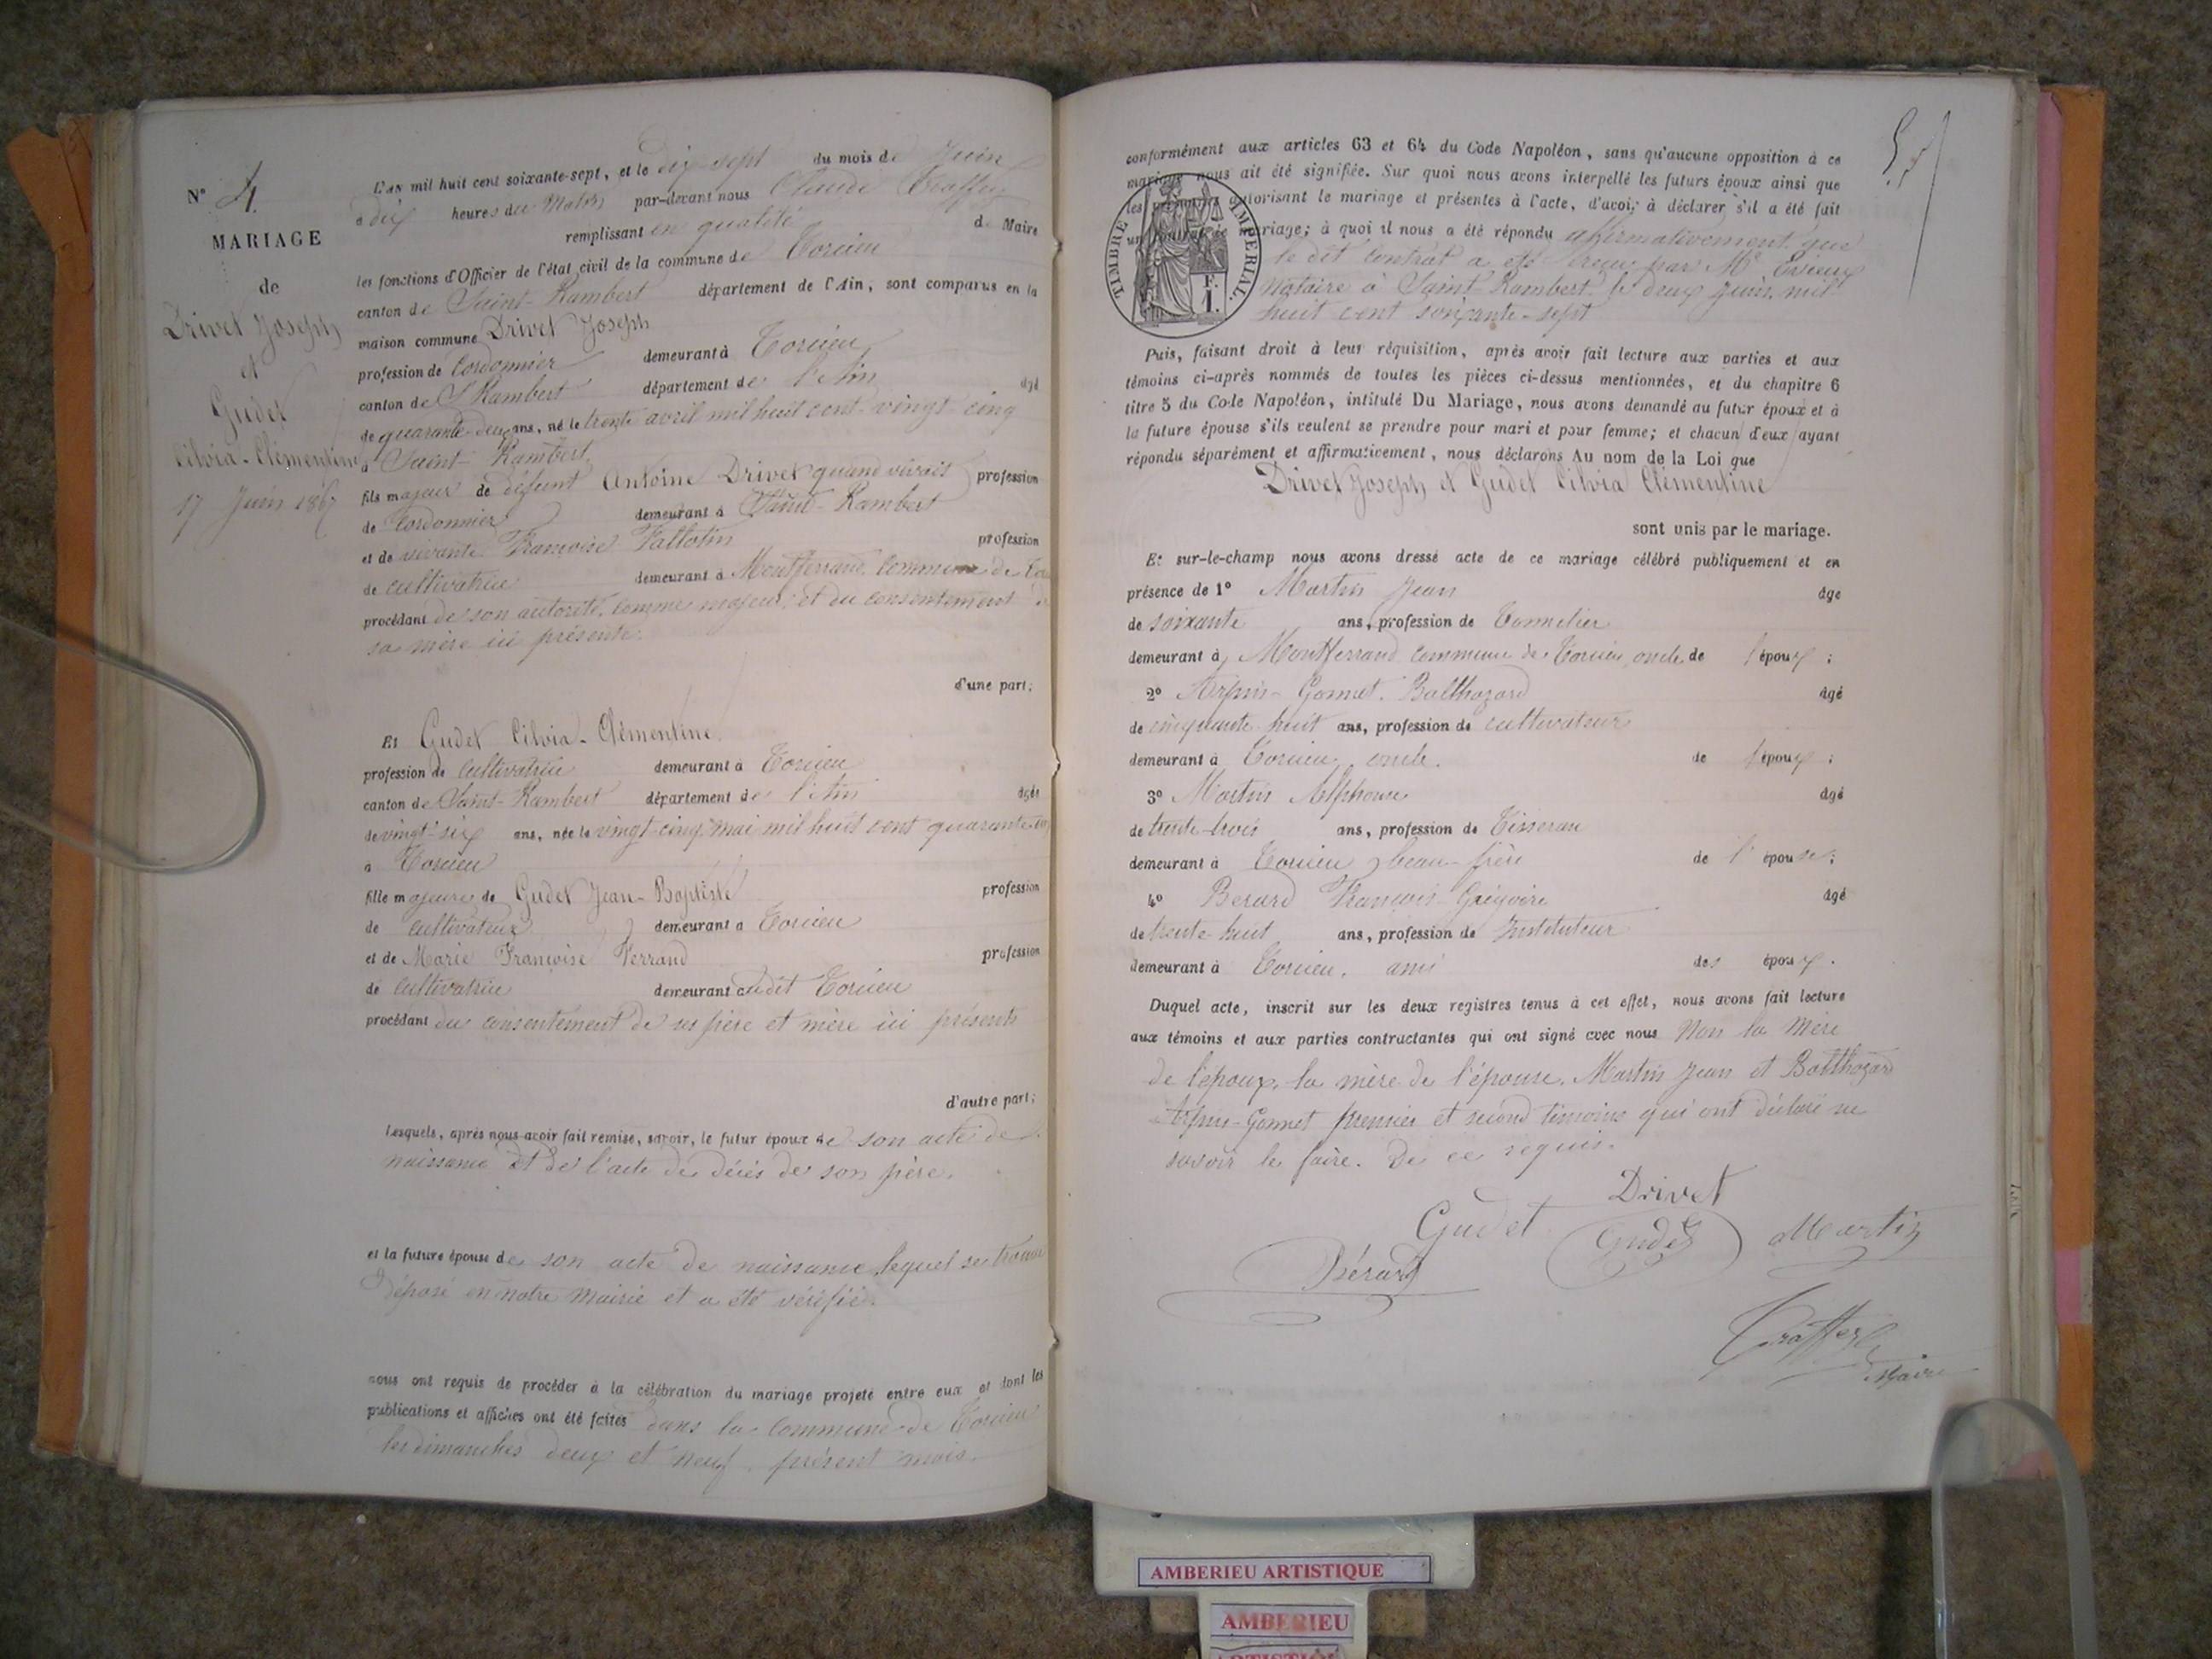 N° 4
MARIAGE
de
Drivet Joseph
et
Gudet
Cilvia-Clémentine
17 Juin 1867
L'an mil huit cent soixante-sept, et le dix sept du mois de Juin
à dix heures du Matin par-devant nous Claude
remplissant en qualité de Maire
les fonctions d'Officier de l'état civil de la commune de Torcieu
canton de Saint-Rambert département de l'Ain, sont comparus en la
maison commune Drivet Joseph
profession de Cordonnier demeurant à Torcieu
canton de St Rambert département de l'Ain âgé
de quarante-deux ans, né le trente avril mil huit cent vingt cinq
à Saint-Rambert
fils majeur de défunt Antoine Drivet quand vivait profession
de Cordonnier demeurant à Saint-Rambert
et de vivante Francoise profession
de cultivatrice demeurant à Montferrand Commune de
procédant de son autorité, comme majeur, et du consentement de
sa mère ici présente.
d'une part;
Et Gudet Cilvia-Clémentine
profession de Cultivatrice demeurant à Torcieu
canton de Saint-Rambert département de l'Ain âgée
de vingt-six ans, née le vingt-cinq mai mil huit cent quarante
à Torcieu
fille majeure de Gudet Jean-Baptiste profession
de Cultivateur demeurant à Torcieu
et de Marie Francoise Ferrand profession
de Cultivatrice demeurant audit Torcieu
procédant du consentement de ses père et mère ici présents
d'autre part;
Lesquels, après nous avoir fait remise, savoir, le futur époux de son acte de
naissance et de l'acte de décès de son père.
et la future épouse de son acte de naissance lequel se trouve
déposé en notre Mairie et a été vérifié.
nous ont requis de procéder à la célébration du mariage projeté entre eux et dont les
publications et affiches ont été faites dans la Commune de Torcieu
les dimanches deux et neuf présent mois.
conformément aux articles 63 et 64 du Code Napoléon, sans qu'aucune opposition à ce
mariage nous ait été signifiée. Sur quoi nous avons interpellé les futurs époux ainsi que
les personnes autorisant le mariage et présentes à l'acte, d'avoir à déclarer s'il a été fait
un contrat de mariage; à quoi il nous a été répondu affirmativement que
le dit contrat a été reçu par Me
notaire à Saint-Rambert le deux Juin mil
huit cent soixante-sept
TIMBRE IMPERIAL.
1 F.
Puis, faisant droit à leur réquisition, après avoir fait lecture aux parties et aux
témoins ci-après nommés de toutes les pièces ci-dessus mentionnées, et du chapitre 6
titre 5 du Code Napoléon, intitulé Du Mariage, nous avons demandé au futur époux et à
la future épouse s'ils veulent se prendre pour mari et pour femme; et chacun d'eux ayant
répondu séparément et affirmativement, nous déclarons Au nom de la Loi que
Drivet Joseph et Gudet Cilvia Clémentine
sont unis par le mariage.
Et sur-le-champ nous avons dressé acte de ce mariage célébré publiquement et en
présence de 1° Martin Jean âgé
de soixante ans, profession de Tonnelier
demeurant à Montferrand commune de Torcieu, oncle de l'époux;
2° Arpin-Gonnet Balthazard âgé
de cinquante-huit ans, profession de cultivateur
demeurant à Torcieu, oncle de l'époux;
3° Martin Alphonse âgé
de trente-trois ans, profession de Tisseran
demeurant à Torcieu, beau-frère de l'épouse;
4° Berard François Grégoire âgé
de trente-huit ans, profession de Instituteur
demeurant à Torcieu, ami des époux.
Duquel acte, inscrit sur les deux registres tenus à cet effet, nous avons fait lecture
aux témoins et aux parties contractantes qui ont signé avec nous Non la Mère
de l'époux, la mère de l'épouse, Martin Jean et Balthazard
Arpin-Gonnet premier et second témoins qui ont déclaré ne
savoir le faire. De ce requis.
Drivet
Gudet Gudet Martin
Bérard
Maire
AMBERIEU ARTISTIQUE
AMBERIEU
ARTISTIQUE